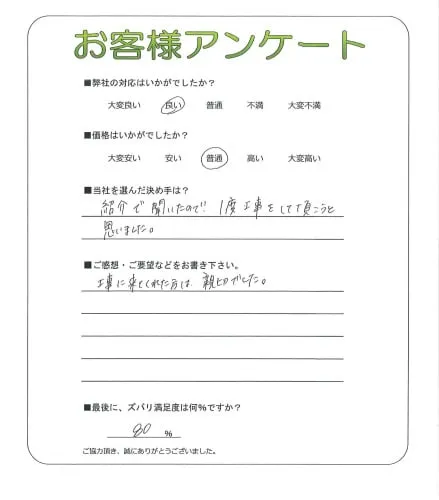 お客様アンケート
■弊社の対応はいかがでしたか?
大変良い 良い 普通 不満 大変不満
■価格はいかがでしたか?
大変安い 安い 普通 高い 大変高い
■当社を選んだ決め手は?
紹介で聞いたので、1度工事をして頂こうと
思いました。
■ご感想・ご要望などをお書き下さい。
工事に来てくれた方は、親切でした。
■最後に、ズバリ満足度は何%ですか?
80 %
ご協力頂き、誠にありがとうございました。